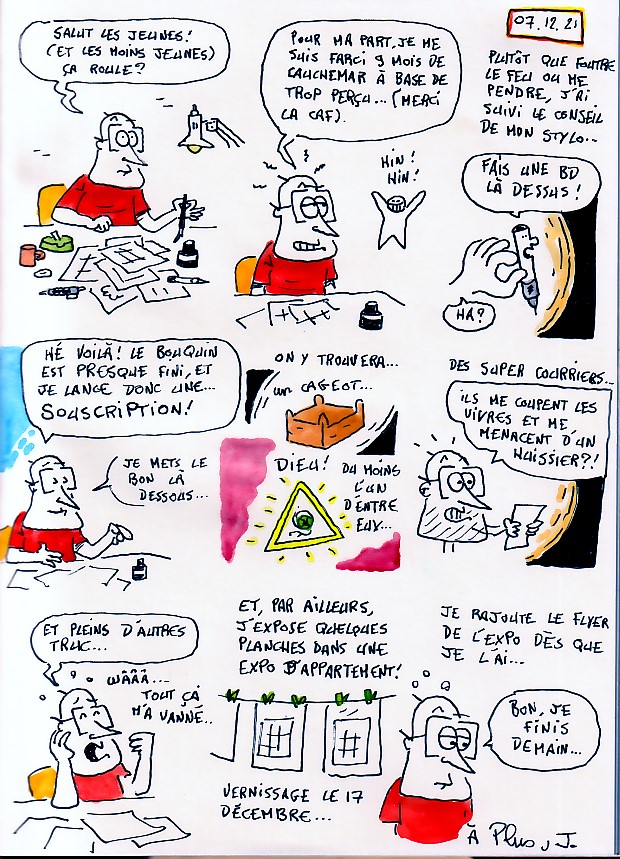 SALUT LES JEUNES!
(ET LES MOINS JEUNES)
ÇA ROULE?
POUR MA PART, JE ME
SUIS FARCI 9 MOIS DE
CAUCHEMAR À BASE DE
TROP PERÇU... (MERCI
LA CAF).
HIN!
HIN!
07.12.21
PLUTÔT QUE FOUTRE
LE FEU OU ME
PENDRE, J'AI
SUIVI LE CONSEIL
DE MON STYLO...
FAIS UNE BD
LÀ DESSUS!
HA?
HÉ VOILÀ! LE BOUQUIN
EST PRESQUE FINI, ET
JE LANCE DONC UNE...
SOUSCRIPTION!
JE METS LE
BON LÀ
DESSOUS...
ON Y TROUVERA...
UN CAGEOT...
DIEU!
DU MOINS
L'UN
D'ENTRE
EUX...
DES SUPER COURRIERS...
ILS ME COUPENT LES
VIVRES ET ME
MENACENT D'UN
HUISSIER?!
ET PLEINS D'AUTRES
TRUC...
WÂÂÂ...
TOUT ÇA
M'A VANNÉ..
ET, PAR AILLEURS,
J'EXPOSE QUELQUES
PLANCHES DANS UNE
EXPO D'APPARTEMENT!
VERNISSAGE LE 17
DÉCEMBRE...
JE RAJOUTE LE FLYER
DE L'EXPO DÈS QUE
JE L'AI...
BON, JE
FINIS
DEMAIN...
À Plus, J.